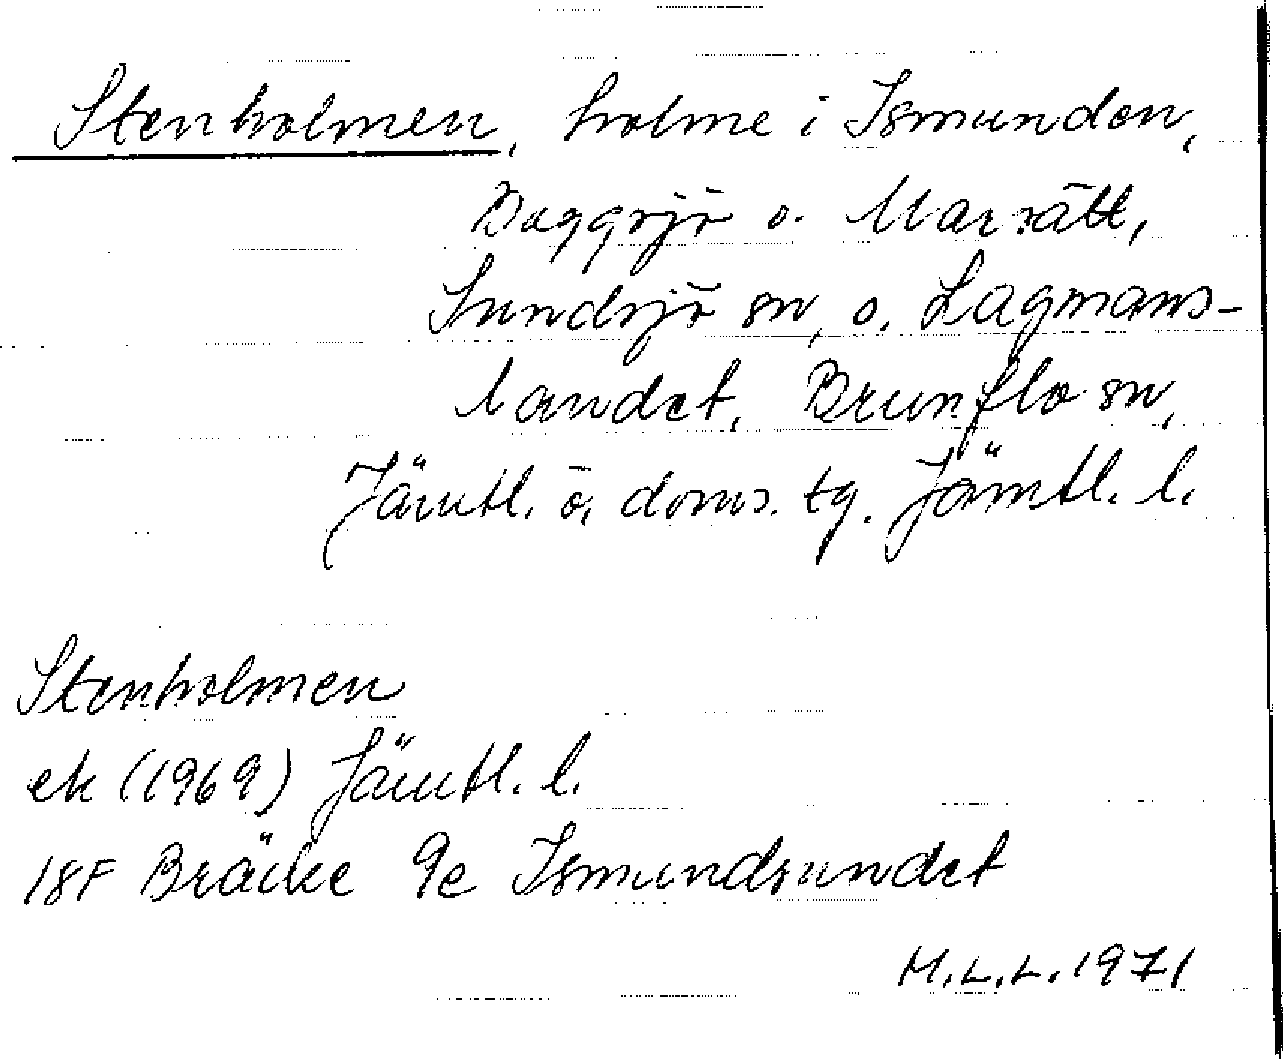 Stenholmen, holme i Ismunden,
Daggsjö o. Marsätt,
Sundsjö sn, o. Lagmans-
landet, Brunflo sn,
Jämtl. ö, doms. tg. Jämtl. l.
Stenholmen
ek (1969) Jämtl. l.
18F Bräcke 9e Ismundsundet
M.L.L. 1971